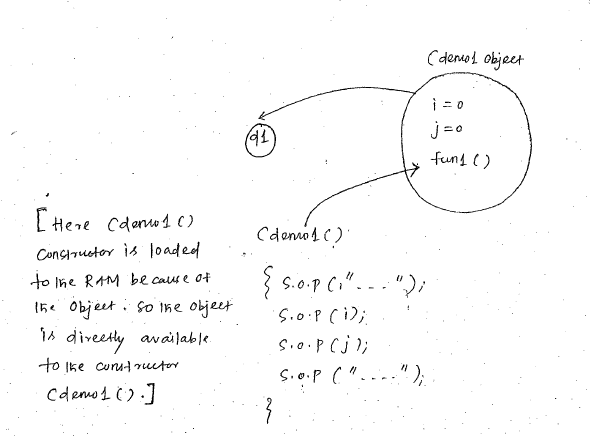 Cdemo1 object
i = 0
j = 0
fun1 ( )
d1
[ Here Cdemo1 ( )
constructor is loaded
to the RAM because of
the object. so the object
is directly available
to the constructor
Cdemo1 ( ). ]
Cdemo1 ( )
{ S.O.P ( "----" );
S.O.P ( i );
S.O.P ( j );
S.O.P ( "----" );
}